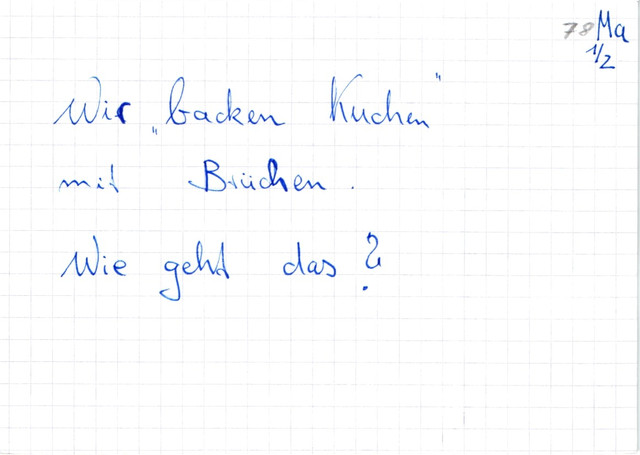 78 Ma
1/2
Wir „backen Kuchen"
mit Brüchen.
Wie geht das?